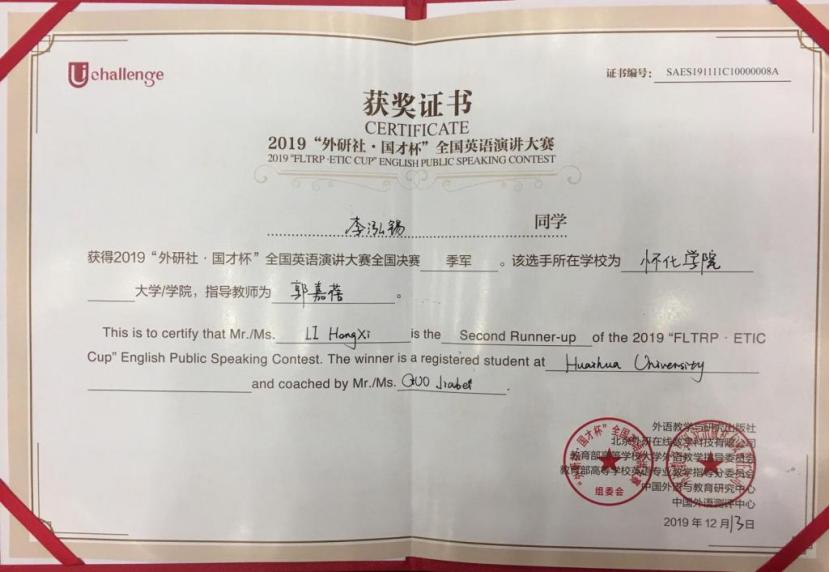 Uchallenge
证书编号： SAES191111C10000008A
获奖证书
CERTIFICATE
2019“外研社·国才杯”全国英语演讲大赛
2019 "FLTRP·ETIC CUP" ENGLISH PUBLIC SPEAKING CONTEST
李泓锡 同学
获得2019“外研社·国才杯”全国英语演讲大赛全国决赛 季军 。该选手所在学校为 怀化学院
大学/学院，指导教师为 郭嘉蓓 。
This is to certify that Mr./Ms. LI HongXi is the Second Runner-up of the 2019 "FLTRP · ETIC
Cup" English Public Speaking Contest. The winner is a registered student at Huaihua University
and coached by Mr./Ms. GUO Jiabei .
外语教学与研究出版社
北京外研在线数字科技有限公司
教育部高等学校大学外语教学指导委员会
教育部高等学校英语专业教学指导分委员会
中国外语与教育研究中心
中国外语测评中心
组委会
2019 年 12 月 13 日